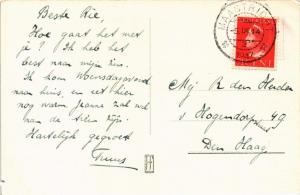 Beste Rie,
Hoe gaat het met
je? Ik heb het
best naar mijn zin.
Ik kom Woensdagavond
naar huis, en ziet hier
nog warm Jeanne zal wel
aan de trein zijn.
Hartelijk gegroet
Truus
MAASTRICHT
Mej R den Heyden
v Hogendorp 49
Den Haag